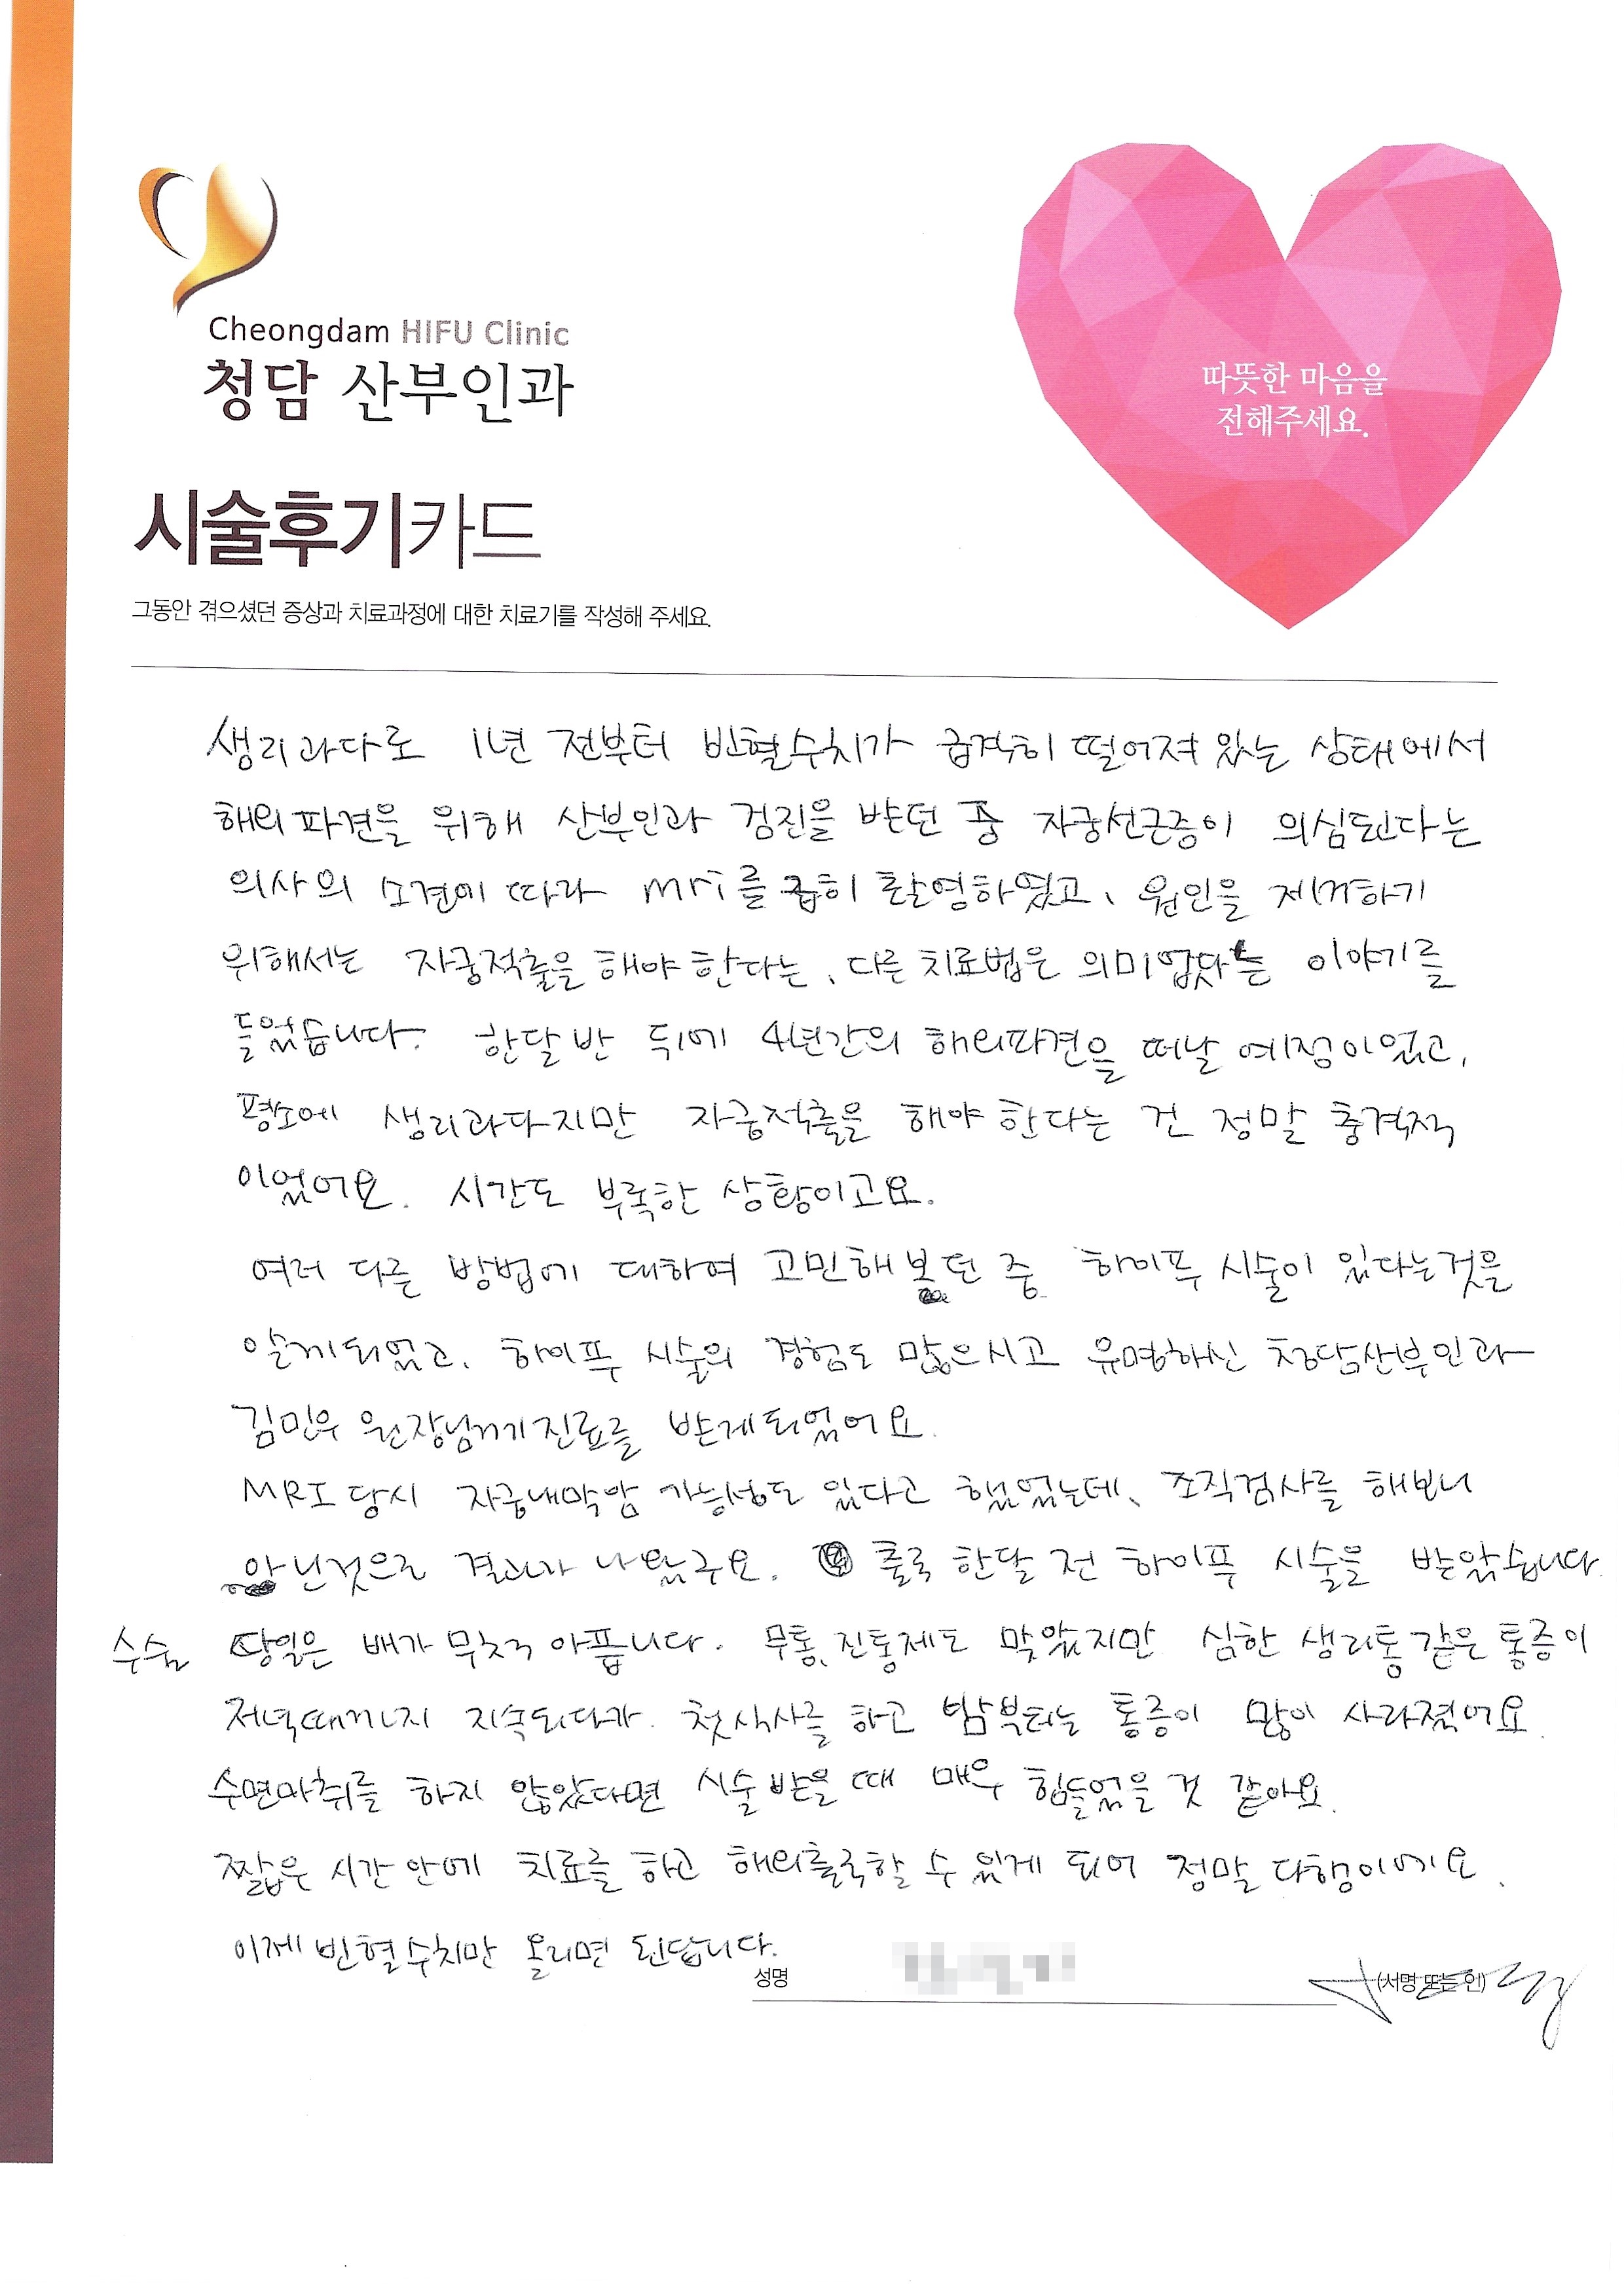 Cheongdam HIFU Clinic
청담 산부인과
따뜻한 마음을
전해주세요.
시술후기카드
그동안 겪으셨던 증상과 치료과정에 대한 치료기를 작성해 주세요.
생리과다로 1년 전부터 빈혈수치가 급격히 떨어져 있는 상태에서
해외파견을 위해 산부인과 검진을 받던 중 자궁선근증이 의심된다는
의사의 소견에 따라 mri를 급히 촬영하였고, 원인을 제거하기
위해서는 자궁적출을 해야 한다는, 다른 치료법은 의미없다는 이야기를
들었습니다. 한달 반 뒤에 4년간의 해외파견을 떠날 예정이었고,
평소에 생리과다지만 자궁적출을 해야 한다는 건 정말 충격적
이었어요. 시간도 부족한 상황이고요.
여러 다른 방법에 대하여 고민해봤던 중 하이푸 시술이 있다는것을
알게되었고, 하이푸 시술의 경험도 많으시고 유명하신 청담산부인과
김민우 원장님께 진료를 받게되었어요.
MRI 당시 자궁내막암 가능성도 있다고 했었는데, 조직검사를 해보니
아닌것으로 결과가 나왔구요. 출국 한달 전 하이푸 시술을 받았습니다.
수술 당일은 배가 무척 아픕니다. 무통, 진통제도 맞았지만 심한 생리통 같은 통증이
저녁때까지 지속되다가 첫식사를 하고 밤부터는 통증이 많이 사라졌어요.
수면마취를 하지 않았다면 시술 받을 때 매우 힘들었을 것 같아요.
짧은 시간 안에 치료를 하고 해외출국할 수 있게 되어 정말 다행이에요.
이제 빈혈 수치만 올리면 된답니다.
성명 (서명 또는 인)